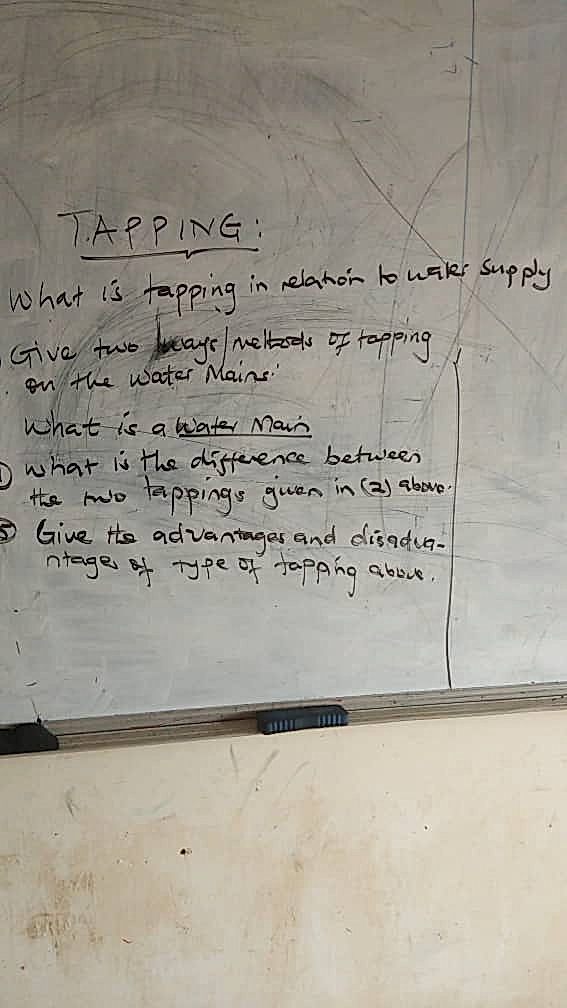 TAPPING:
What is tapping in relation to water supply
Give two ways/methods of tapping
on the water Mains:
What is a Water Main
what is the difference between
the two tappings given in (2) above.
⑤ Give the advantages and disadva-
ntages of type of tapping above.